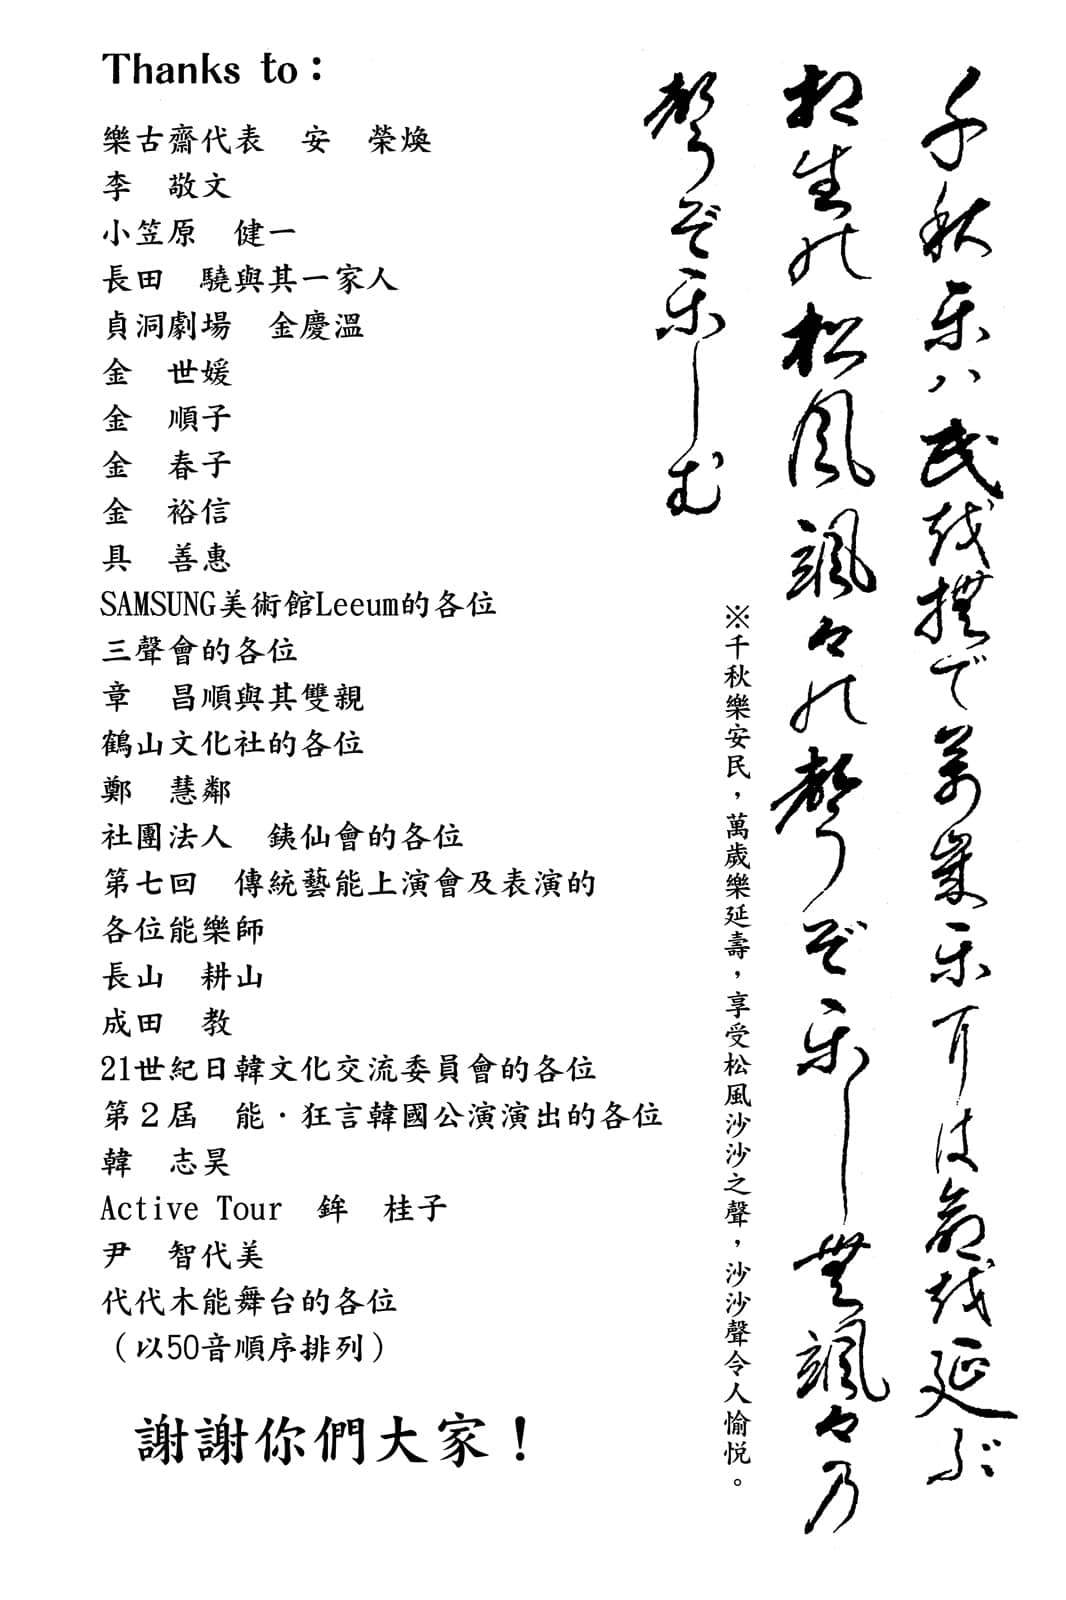 Thanks to：
樂古齋代表　安　榮煥
李　敬文
小笠原　健一
長田　驍與其一家人
貞洞劇場　金慶溫
金　世媛
金　順子
金　春子
金　裕信
具　善惠
SAMSUNG美術館Leeum的各位
三聲會的各位
章　昌順與其雙親
鶴山文化社的各位
鄭　慧鄰
社團法人　銕仙會的各位
第七回　傳統藝能上演會及表演的
各位能樂師
長山　耕山
成田　教
21世紀日韓文化交流委員會的各位
第２屆　能・狂言韓國公演演出的各位
韓　志昊
Active Tour　鉾　桂子
尹　智代美
代代木能舞台的各位
（以50音順序排列）
謝謝你們大家！
千秋楽ハ民越撫で萬歳楽耳は命越延ぶ
相生の松風颯々の聲ぞ楽しむ颯々乃
聲ぞ楽しむ
※千秋樂安民，萬歲樂延壽，享受松風沙沙之聲，沙沙聲令人愉悅。